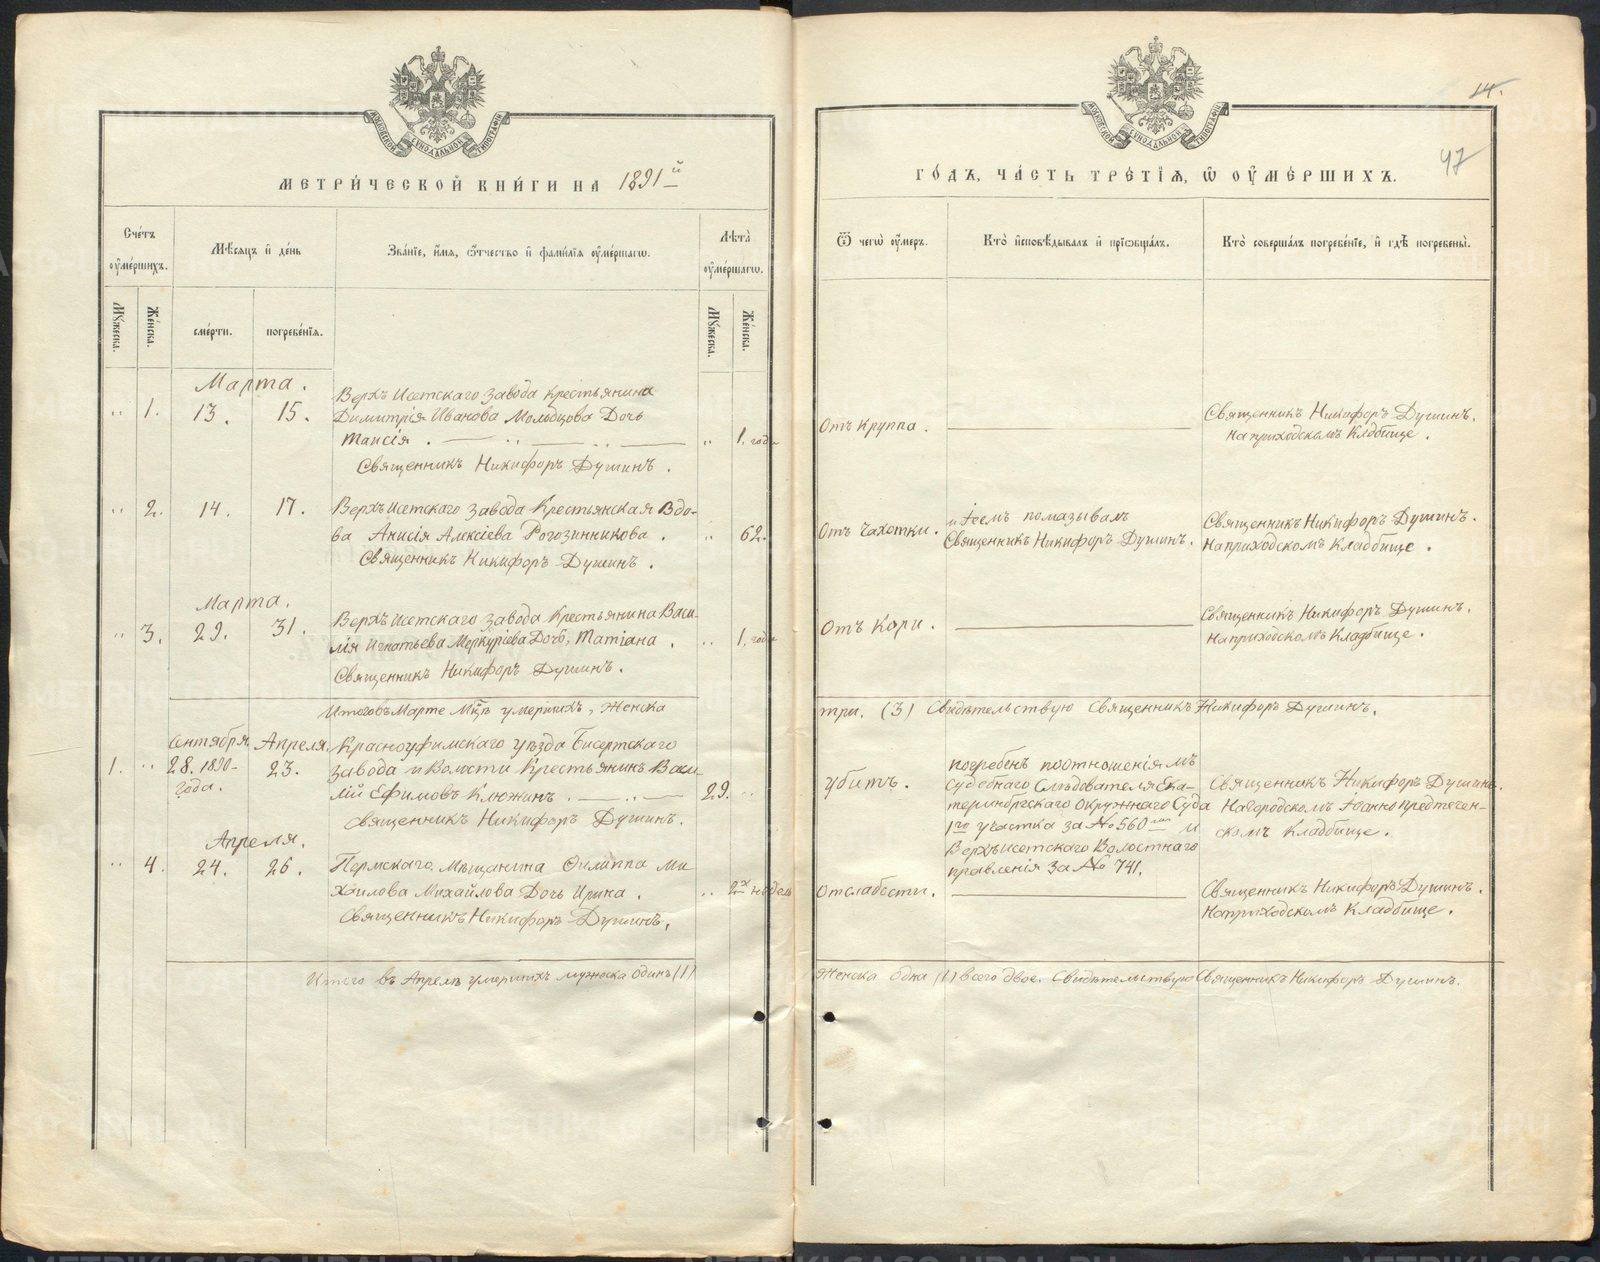 МЕТРИ́ЧЕСКОЙ КНИ́ГИ НА 1891й
Сче́тъ ᲂумершихъ.
Мѣсяцъ и де́нь
Зва́нїе, и́мя, ѻ҆́тчество и фами́лїя ᲂуме́ршагѡ.
Лѣта̀ ᲂуме́ршагѡ.
Мꙋжеска.
Же́нска.
сме́рти.
погребе́нїя.
Мꙋжеска.
Же́нска.
Марта.
" 1. 13. 15. Верхъ Исетскаго завода крестьянина
Димитрія Иванова Мольцова Дочь
Таисія . " 1. года
Священникъ Никифоръ Душинъ.
" 2. 14. 17. Верхъ Исетскаго завода Крестьянская Вдо-
ва Анисія Алексіева Рогозинникова . " 62.
Священникъ Никифоръ Душинъ .
Марта.
" 3. 29. 31. Верхъ Исетскаго завода Крестьянина Васи-
лія Игнатьева Меркуріева Дочь, Татіана . " 1. года
Священникъ Никифоръ Душинъ.
Итого въ Марте Мцѣ умершихъ, Женска
Сентября Апреля. Красноуфимскаго уѣзда Бисертскаго
1. " 28. 1890- 23. завода и Волости Крестьянинъ Васи-
года. лій Ефимовъ Клюжинъ . 29. "
Священникъ Никифоръ Душинъ.
Апреля.
" 4. 24. 26. Пермскаго Мѣщанина Филиппа Ми
хайлова Михайлова Дочь Ирина . " 2х недель
Священникъ Никифоръ Душинъ.
Итого въ Апреле умершихъ мужска один (1)
14.
47
ГО́ДЪ, ЧА́СТЬ ТРЕ́ТЇѦ, Ѿ ОУ҆МЕ́РШИХЪ.
Ѿ чегѡ̀ ᲂу́меръ.
Кто̀ и҆сповѣ́дывалъ и҆ прїѡбща́лъ.
Кто̀ соверша́лъ погребе́нїе, и҆ гдѣ̀ погребены̀.
Отъ Круппа .
Священникъ Никифоръ Душинъ.
На приходскомъ Кладбище .
Отъ Чахотки.
и Іеемъ помазывалъ
Священникъ Никифоръ Душинъ.
Священникъ Никифоръ Душинъ.
На приходскомъ Кладбище .
Отъ Кори .
Священникъ Никифоръ Душинъ.
На приходскомъ Кладбище .
три. (3) Свидѣтельствую Священникъ Никифоръ Душинъ.
Убитъ .
погребенъ по отношеніямъ
Судебнаго Слѣдователя Ека-
теринбргскаго Окружнаго Суда
1го участка за № 560 и
Верхъисетскаго Волостнаго
правленія за № 741.
Священникъ Никифоръ Душинъ.
На городскомъ Іоанно предтечен-
скомъ Кладбище .
От слабости .
Священникъ Никифоръ Душинъ.
На приходскомъ Кладбище .
Женска одна (1) всего двое. Свидѣтельствую Священникъ Никифоръ Душинъ.